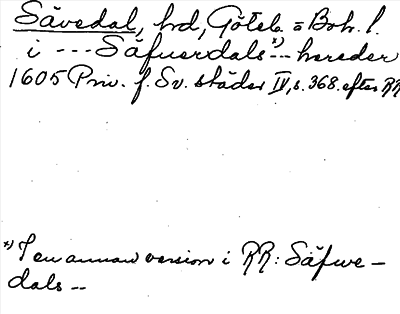 Sävedal, hd, Göteb. o Boh. l.
i --- Säfuerdals *) -- hereder
1605 Priv. f. Sv. städer IV, s. 368. efter RR
*) I en annan version i RR: Säfwe-
dals --